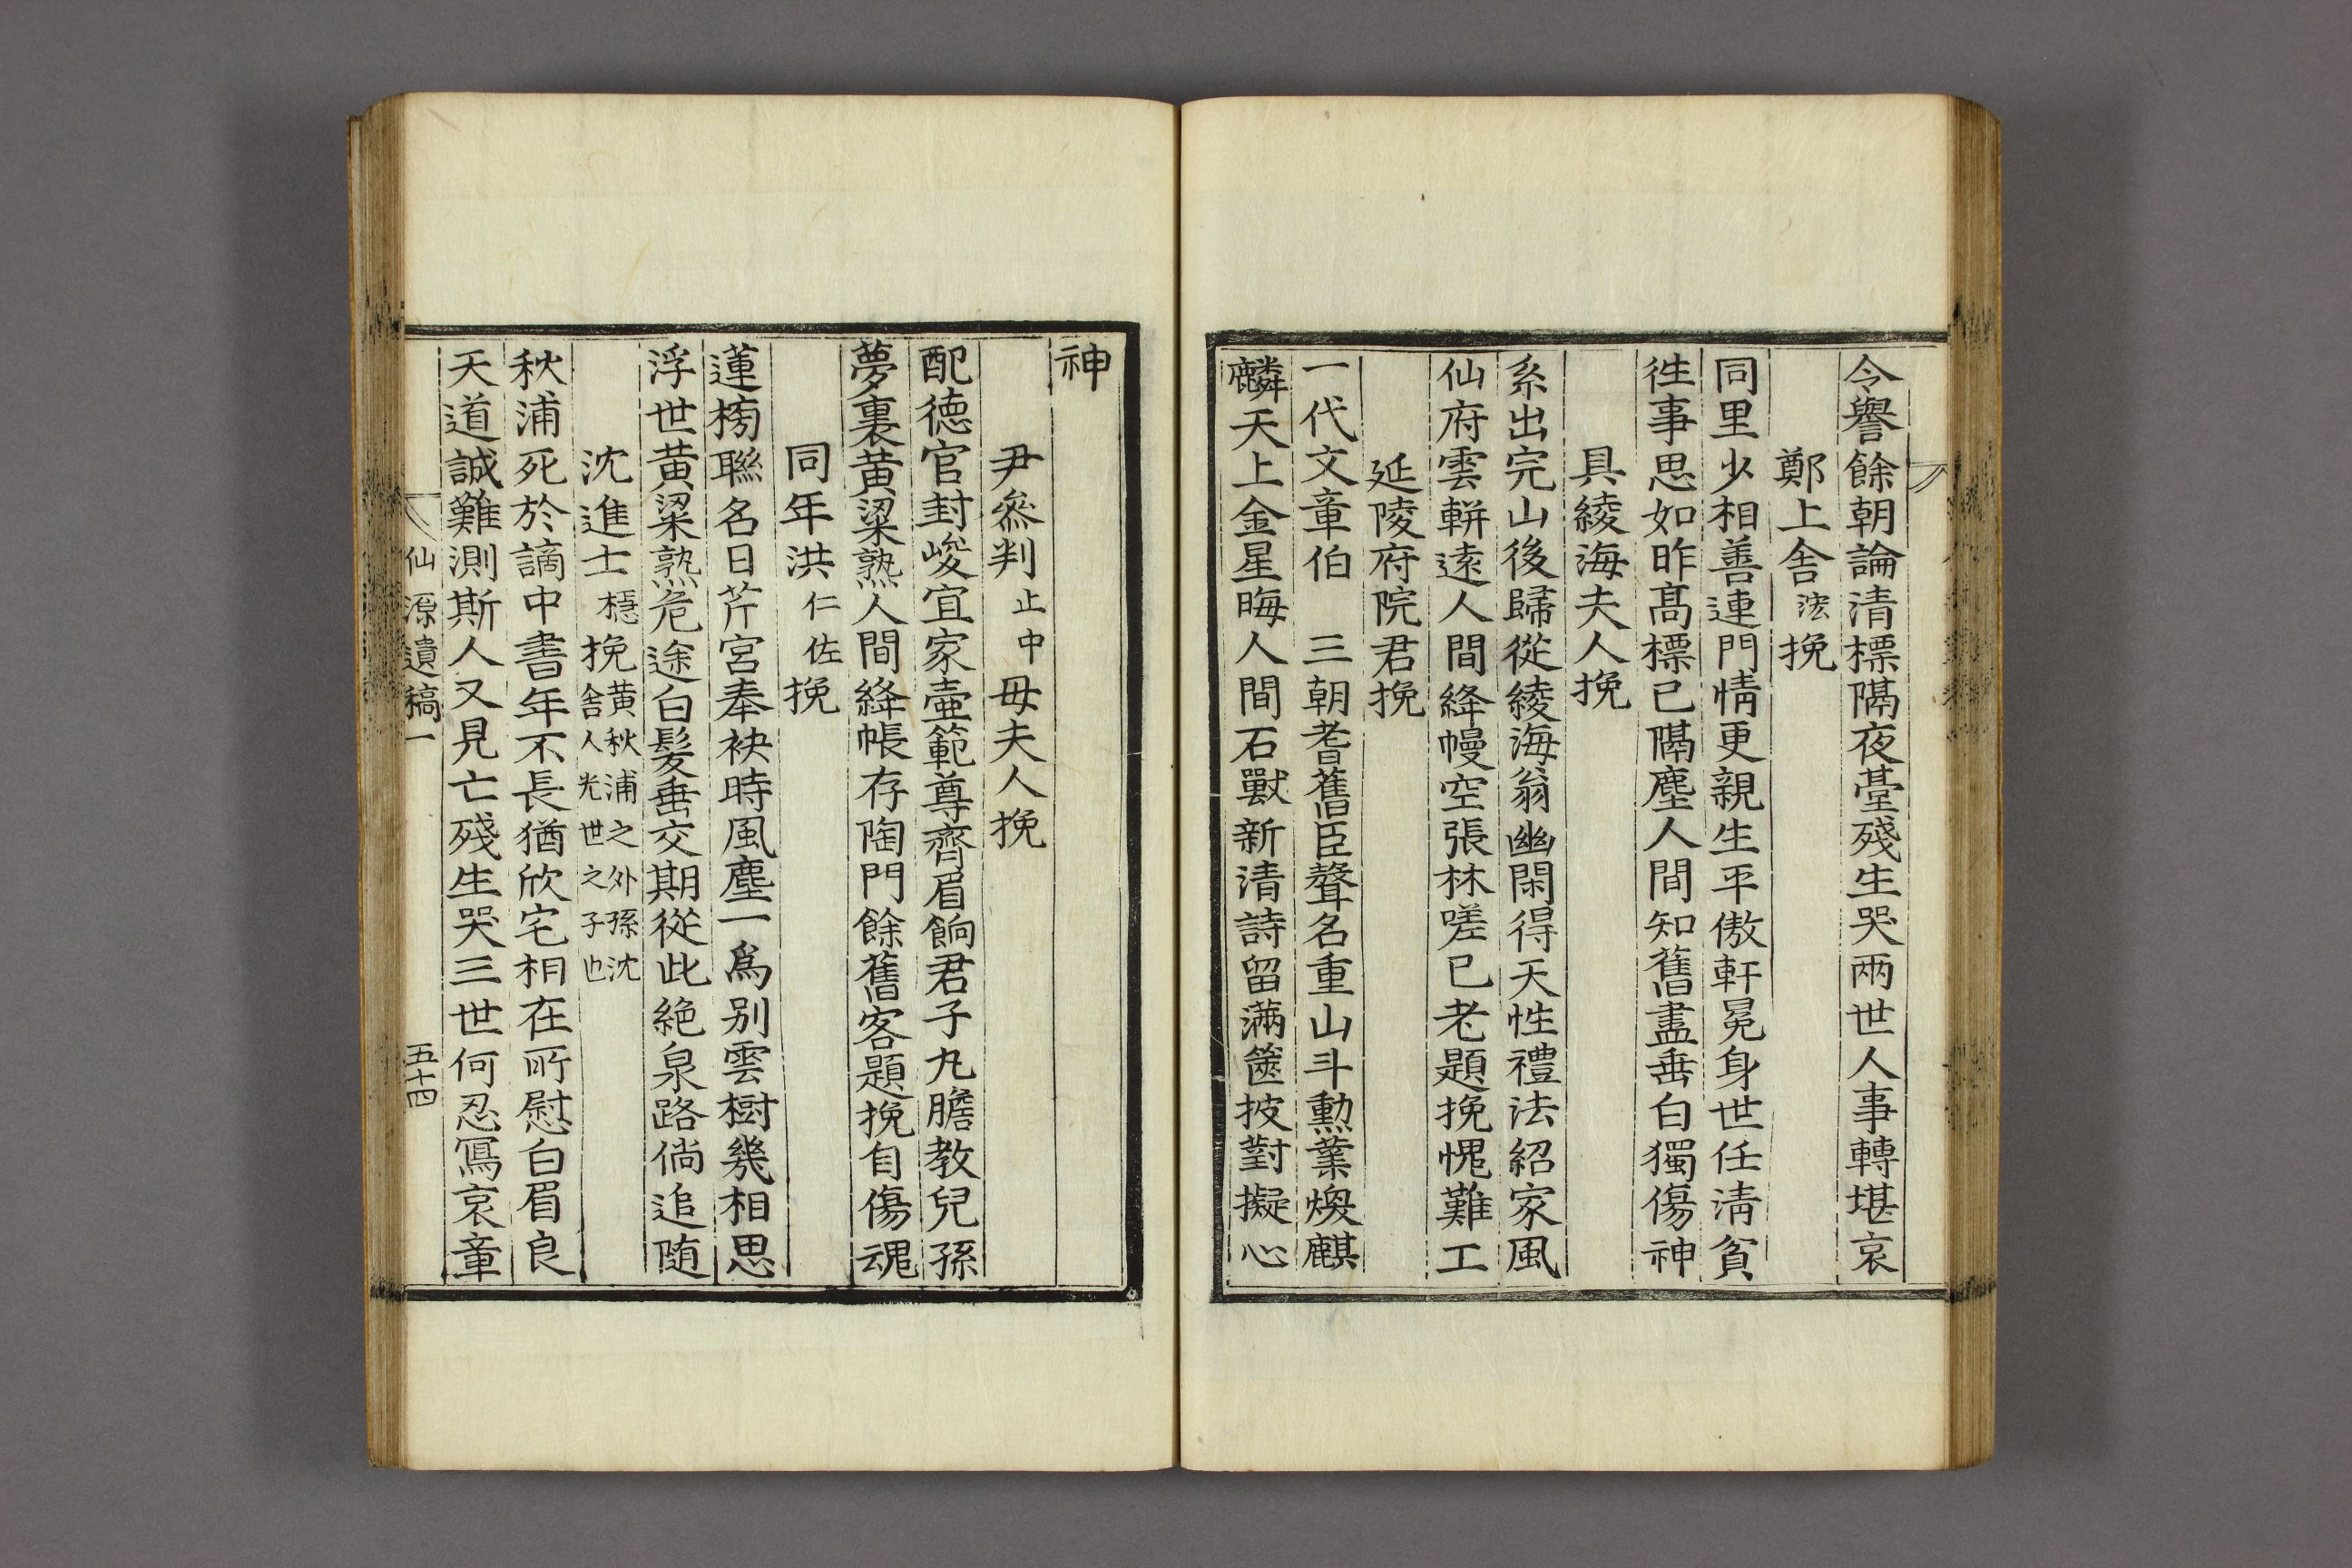 令譽餘朝論清標隔夜臺殘生哭兩世人事轉堪哀
鄭上舍浤挽
同里少相善連門情更親生平傲軒冕身世任淸貧
徃事思如昨高標已隔塵人間知舊盡垂白獨傷神
具綾海夫人挽
系出完山後歸從綾海翁幽閑得天性禮法紹家風
仙府雲軿遠人間絳幔空張林嗟已老題挽愧難工
延陵府院君挽
一代文章伯　三朝耆舊臣聲名重山斗勳業煥麒
麟天上金星晦人間石獸新清詩留滿篋披對擬心
神
尹叅判止中母夫人挽
配德官封峻宜家壼範尊齊眉餉君子丸膽教兒孫
夢裏黃粱熟人間絳帳存陶門餘舊客題挽自傷魂
同年洪仁佐挽
蓮榜聯名日芹宮奉袂時風塵一爲别雲樹幾相思
浮世黃粱熟危途白髮垂交期從此絶泉路倘追随
沈進士檼挽黃秋浦之外孫沈舍人光世之子也
秋浦死於謫中書年不長猶欣宅相在所慰白眉良
天道誠難測斯人又見亡殘生哭三世何忍寫哀章
仙源遺稿一
五十四